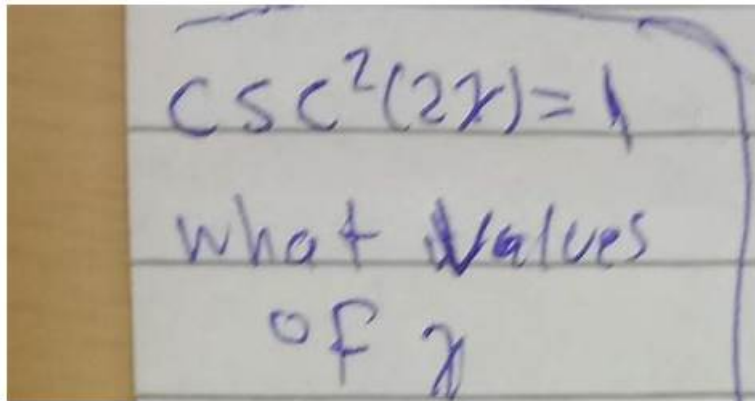 csc²(2x)=1
what values
of x